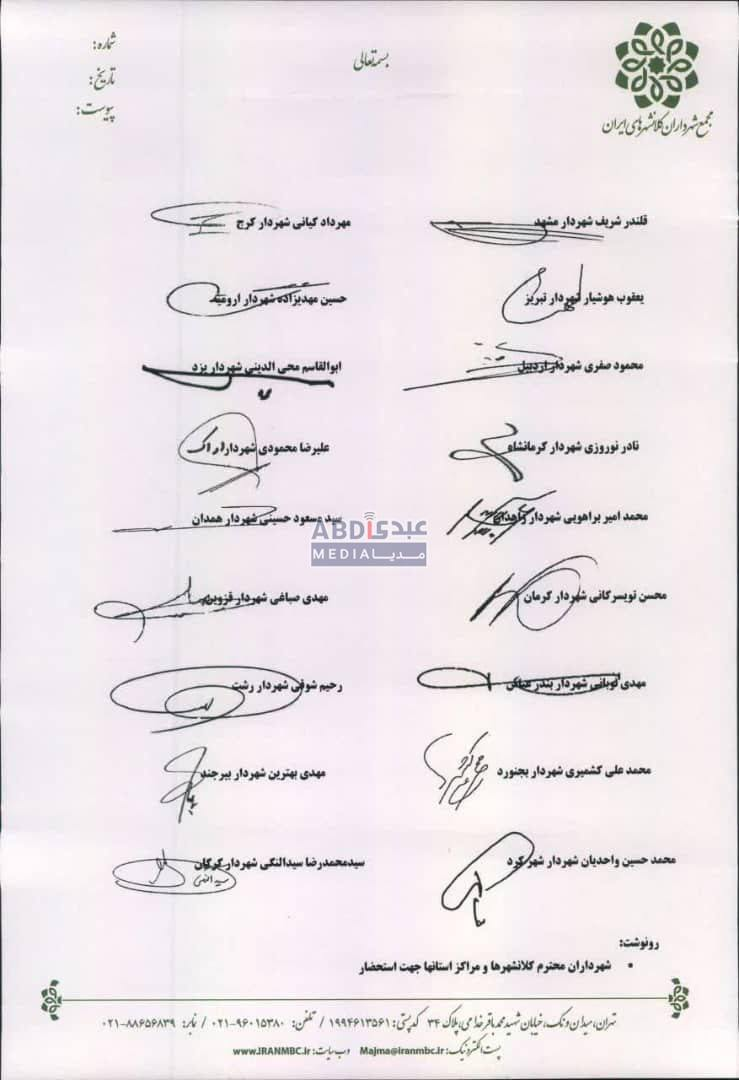 بسمه تعالی
شماره:
تاریخ:
پیوست:
مجمع شهرداران کلانشهرهای ایران
قلندر شریف شهردار مشهد
مهرداد کیانی شهردار کرج
یعقوب هوشیار شهردار تبریز
حسین مهدیزاده شهردار ارومیه
محمود صفری شهردار اردبیل
ابوالقاسم محی الدینی شهردار یزد
نادر نوروزی شهردار کرمانشاه
علیرضا محمودی شهردار اراک
محمد امیر براهویی شهردار زاهدان
سید مسعود حسینی شهردار همدان
ABDi عبدی
MEDIA مدیا
محسن تویسرکانی شهردار کرمان
مهدی صباغی شهردار قزوین
مهدی نوبانی شهردار بندر عباس
رحیم شوقی شهردار رشت
محمد علی کشمیری شهردار بجنورد
مهدی بهترین شهردار بیرجند
محمد حسین واحدیان شهردار شهر کرد
سیدمحمدرضا سیدالنگی شهردار گرگان
رونوشت:
▪ شهرداران محترم کلانشهرها و مراکز استانها جهت استحضار
تهران، میدان ونک، خیابان شهید محمد باقر خدامی، پلاک ۳۴ کدپستی: ۱۹۹۴۶۱۳۵۶۱ / تلفن: ۹۶۰۱۵۳۸۰-۰۲۱ / نمابر: ۸۸۶۵۶۸۳۹-۰۲۱
پست الکترونیک: Majma@iranmbc.ir وب سایت: www.IRANMBC.ir